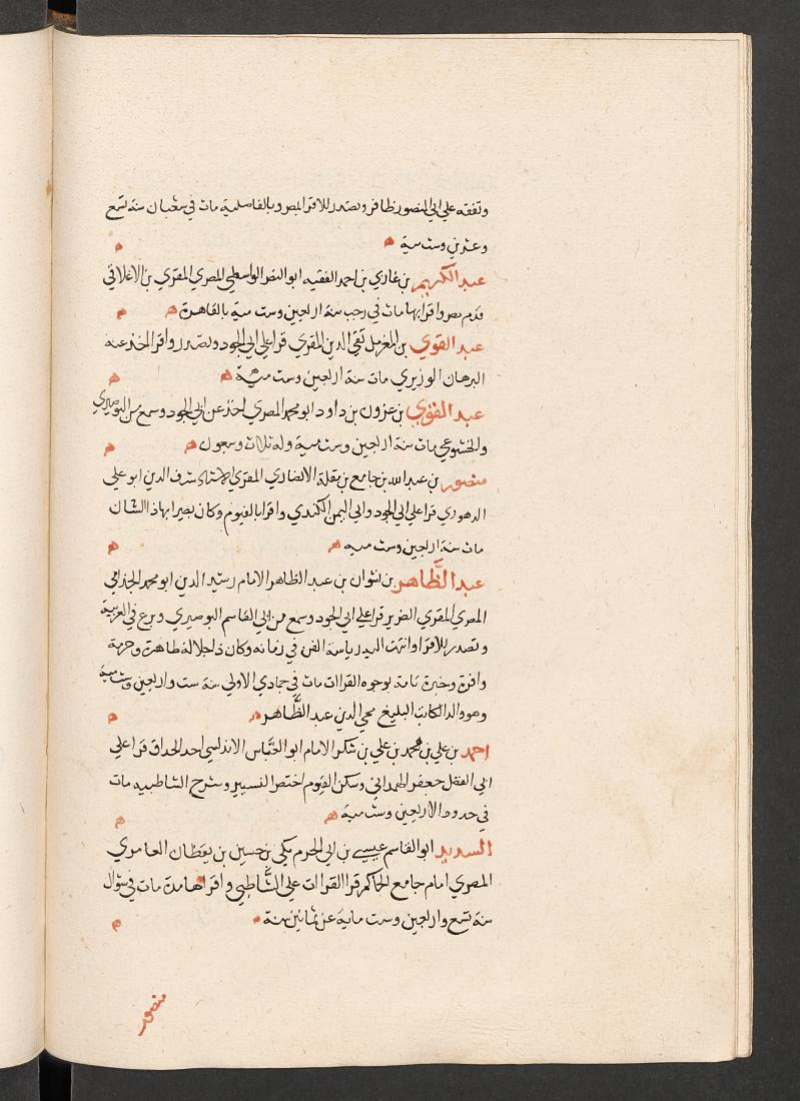 وتفقه علي ابي المنصور ظافر وتصدر للاقرا بمصر وبالفاضلية مات في شعبان سنة تسع
وعشرين وست مية ه ه
عبد الكريم بن غازي بن احمد الفقيه ابو النصر الواسطي المصري المقري بن الاغلاقي
قدم مصر واقرا بها مات في رجب سنة اربعين وست مية بالقاهرة ه ه
عبد القوي بن المغربل تقي الدين المقري قرا علي ابي الجود وتصدر واقرا اخذ عنه
البرهان الوزيري مات سنة اربعين وست مية ه ه
عبد القوي بن عزون بن داود ابو محمد المصري اخذ عن ابي الجود وسمع من البوصيري
والخشوعي مات سنة اربعين وست مية وله ثلاث وسبعون ه ه
منصور بن عبد الله بن جامع بن مقلد الانصاري المقري الاستاد شرف الدين ابو علي
الدهوري قرا علي ابي الجود وابي اليمن الكندي واقرا بالفيوم وكان بصيرا بهذا الشان
مات سنة اربعين وست مية ه ه
عبد الظاهر بن نشوان بن عبد الظاهر الامام رشيد الدين ابو محمد الجذامي
المصري المقري الضرير قرا علي ابي الجود وسمع من ابي القاسم البوصيري وبرع في العربية
وتصدر للاقرا وانتهت اليه رياسة الفن في زمانه وكان ذا جلالة ظاهرة وحرمة
وافرة وخبرة تامة بوجوه القراات مات في جمادي الاولي سنة ست واربعين وست مية
وهو والد الكاتب البليغ محي الدين عبد الظاهر ه ه
احمد بن علي بن محمد بن علي بن شكر الامام ابو العباس الاندلسي احد الحذاق قرا علي
ابي الفضل جعفر الهمداني وسكن الفيوم اختصر التيسير وشرح الشاطبيه مات
في حدود الاربعين وست مية ه ه
السديد ابو القاسم عيسي بن ابي الحرم مكي بن حسين بن يقظان العامري
المصري امام جامع الحاكم قرا القراات علي الشاطبي واقراها مدة مات في شوال
سنة تسع واربعين وست ماية عن ثمانين سنة ه ه
منصور